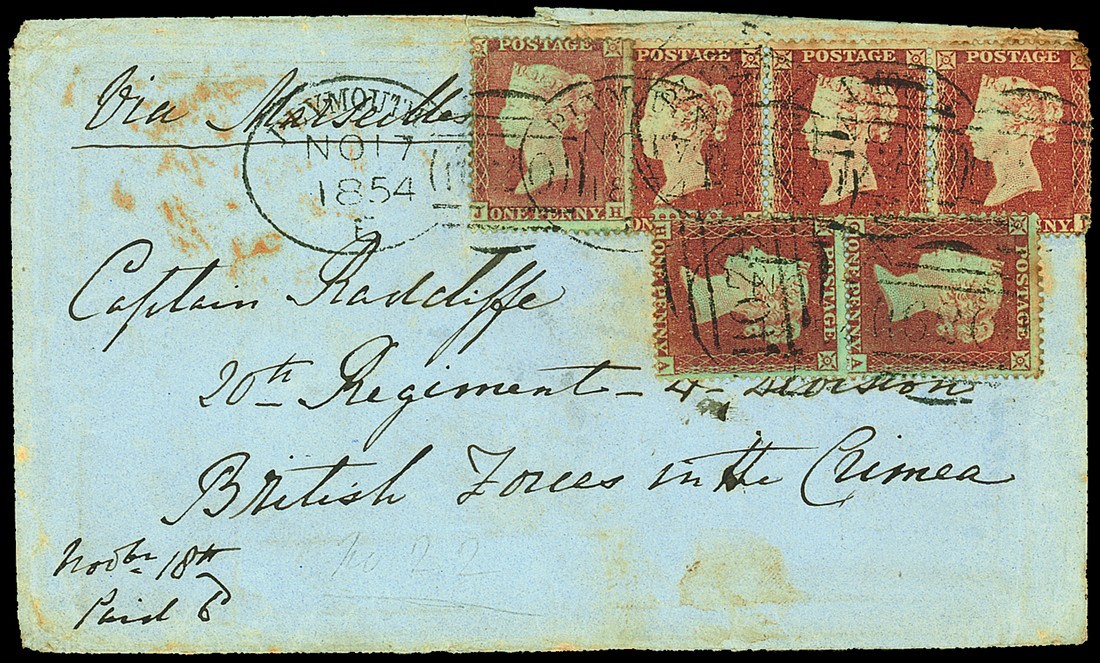 Via Marseilles
PLYMOUTH
NO 17
1854
E
POSTAGE
ONE PENNY
J H
POSTAGE
POSTAGE
POSTAGE
ONE PENNY
A
POSTAGE
G
ONE PENNY
A
POSTAGE
Captain Radcliffe
20th Regiment - 4th Division
British Forces in the Crimea
Novbr 18th
Paid 6d
No 22